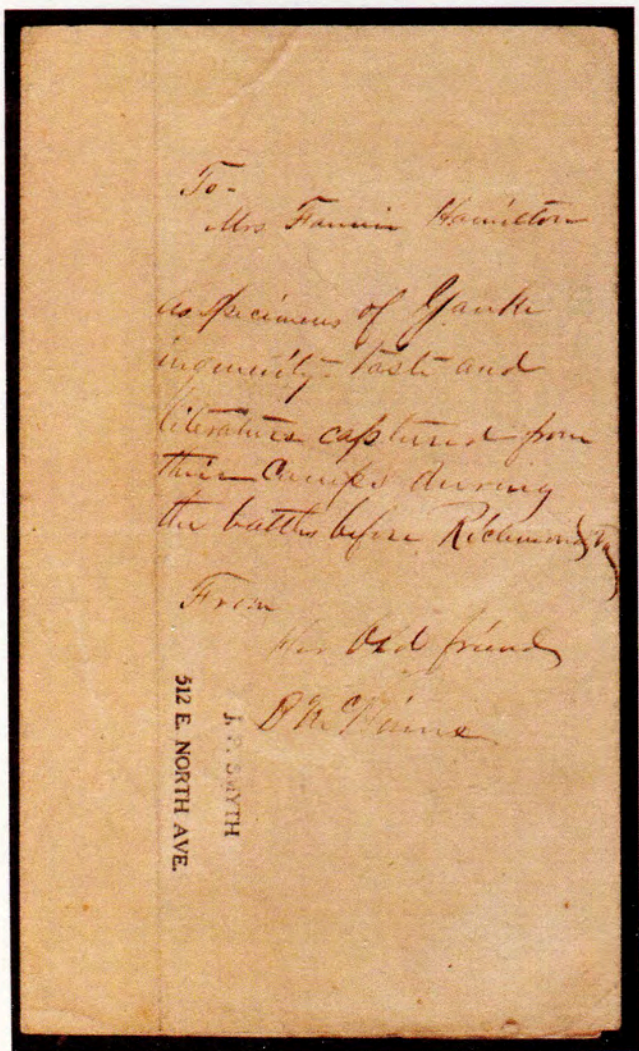 To-
Mrs Fannie Hamilton
as specimens of Yankee
ingenuity - taste and
literature captured from
their Camps during
the battles before Richmond Va
From
Her Old friend
512 E. NORTH AVE.
J. P. SMYTH